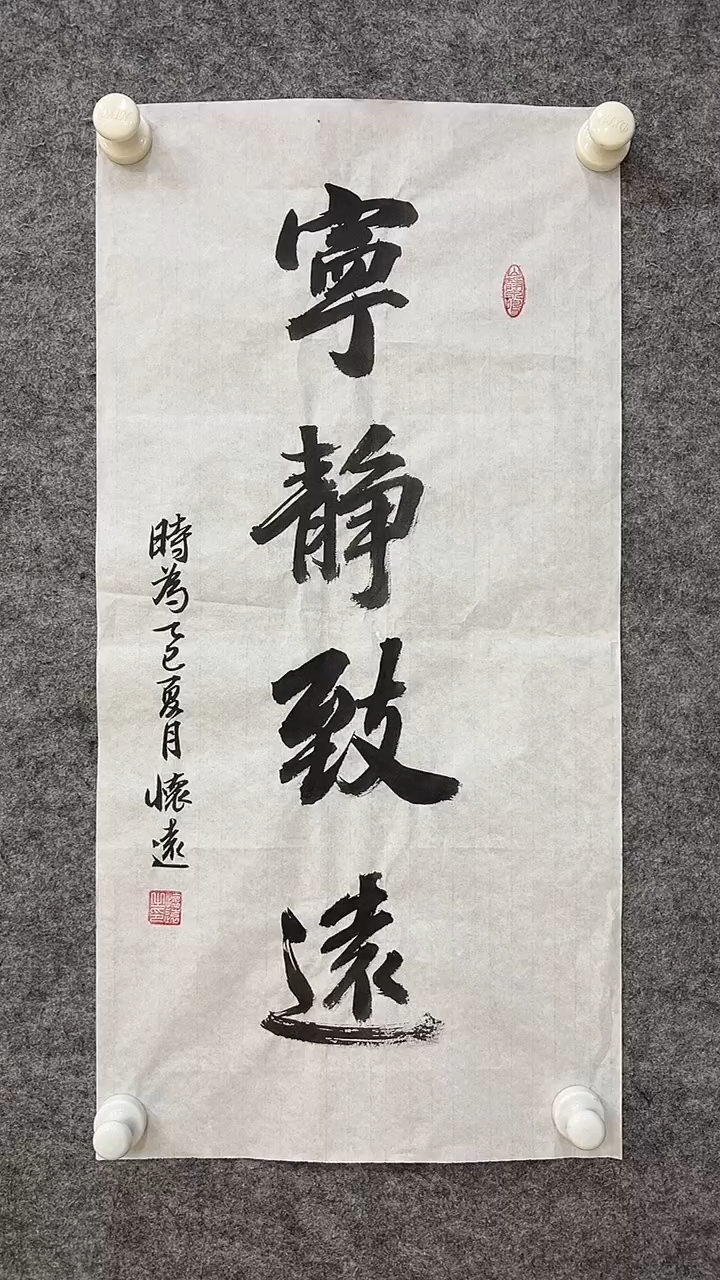 寧靜致遠
時為乙巳夏月懷遠